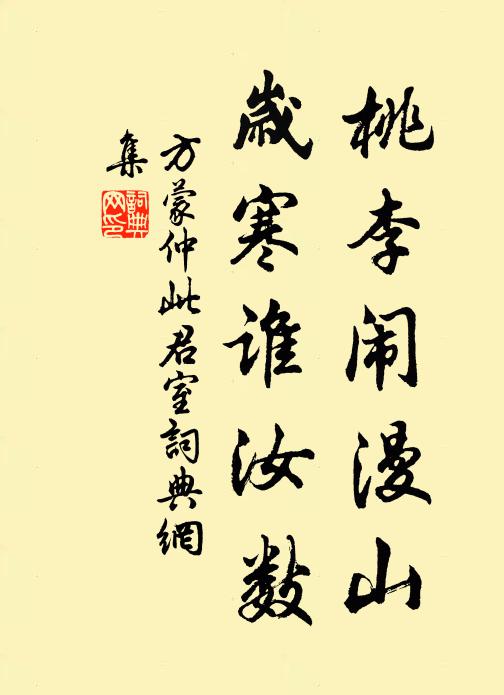 桃李闹漫山
岁寒谁汝数
方蒙仲此君室詞典網
集
詞典
网印